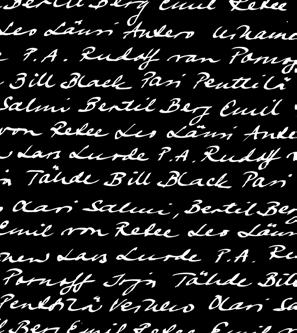 Bertil Berg Emil Retee
Leo Länsi Antero
P.A. Rudoff van Pornoff
Bill Black Pasi Penttilä
Salmi Bertil Berg Emil
von Retee Leo Länsi Ante
Lars Lurde P.A. Rudoff
Tähde Bill Black Pasi
Olavi Salmi, Bertil Ber
Emil von Retee Leo Länsi
Lars Lurde P.A. Ru
Pornoff Irja Tähde Bil
Penttilä Vernero Olavi Sal
Berg Emil Retee Leo